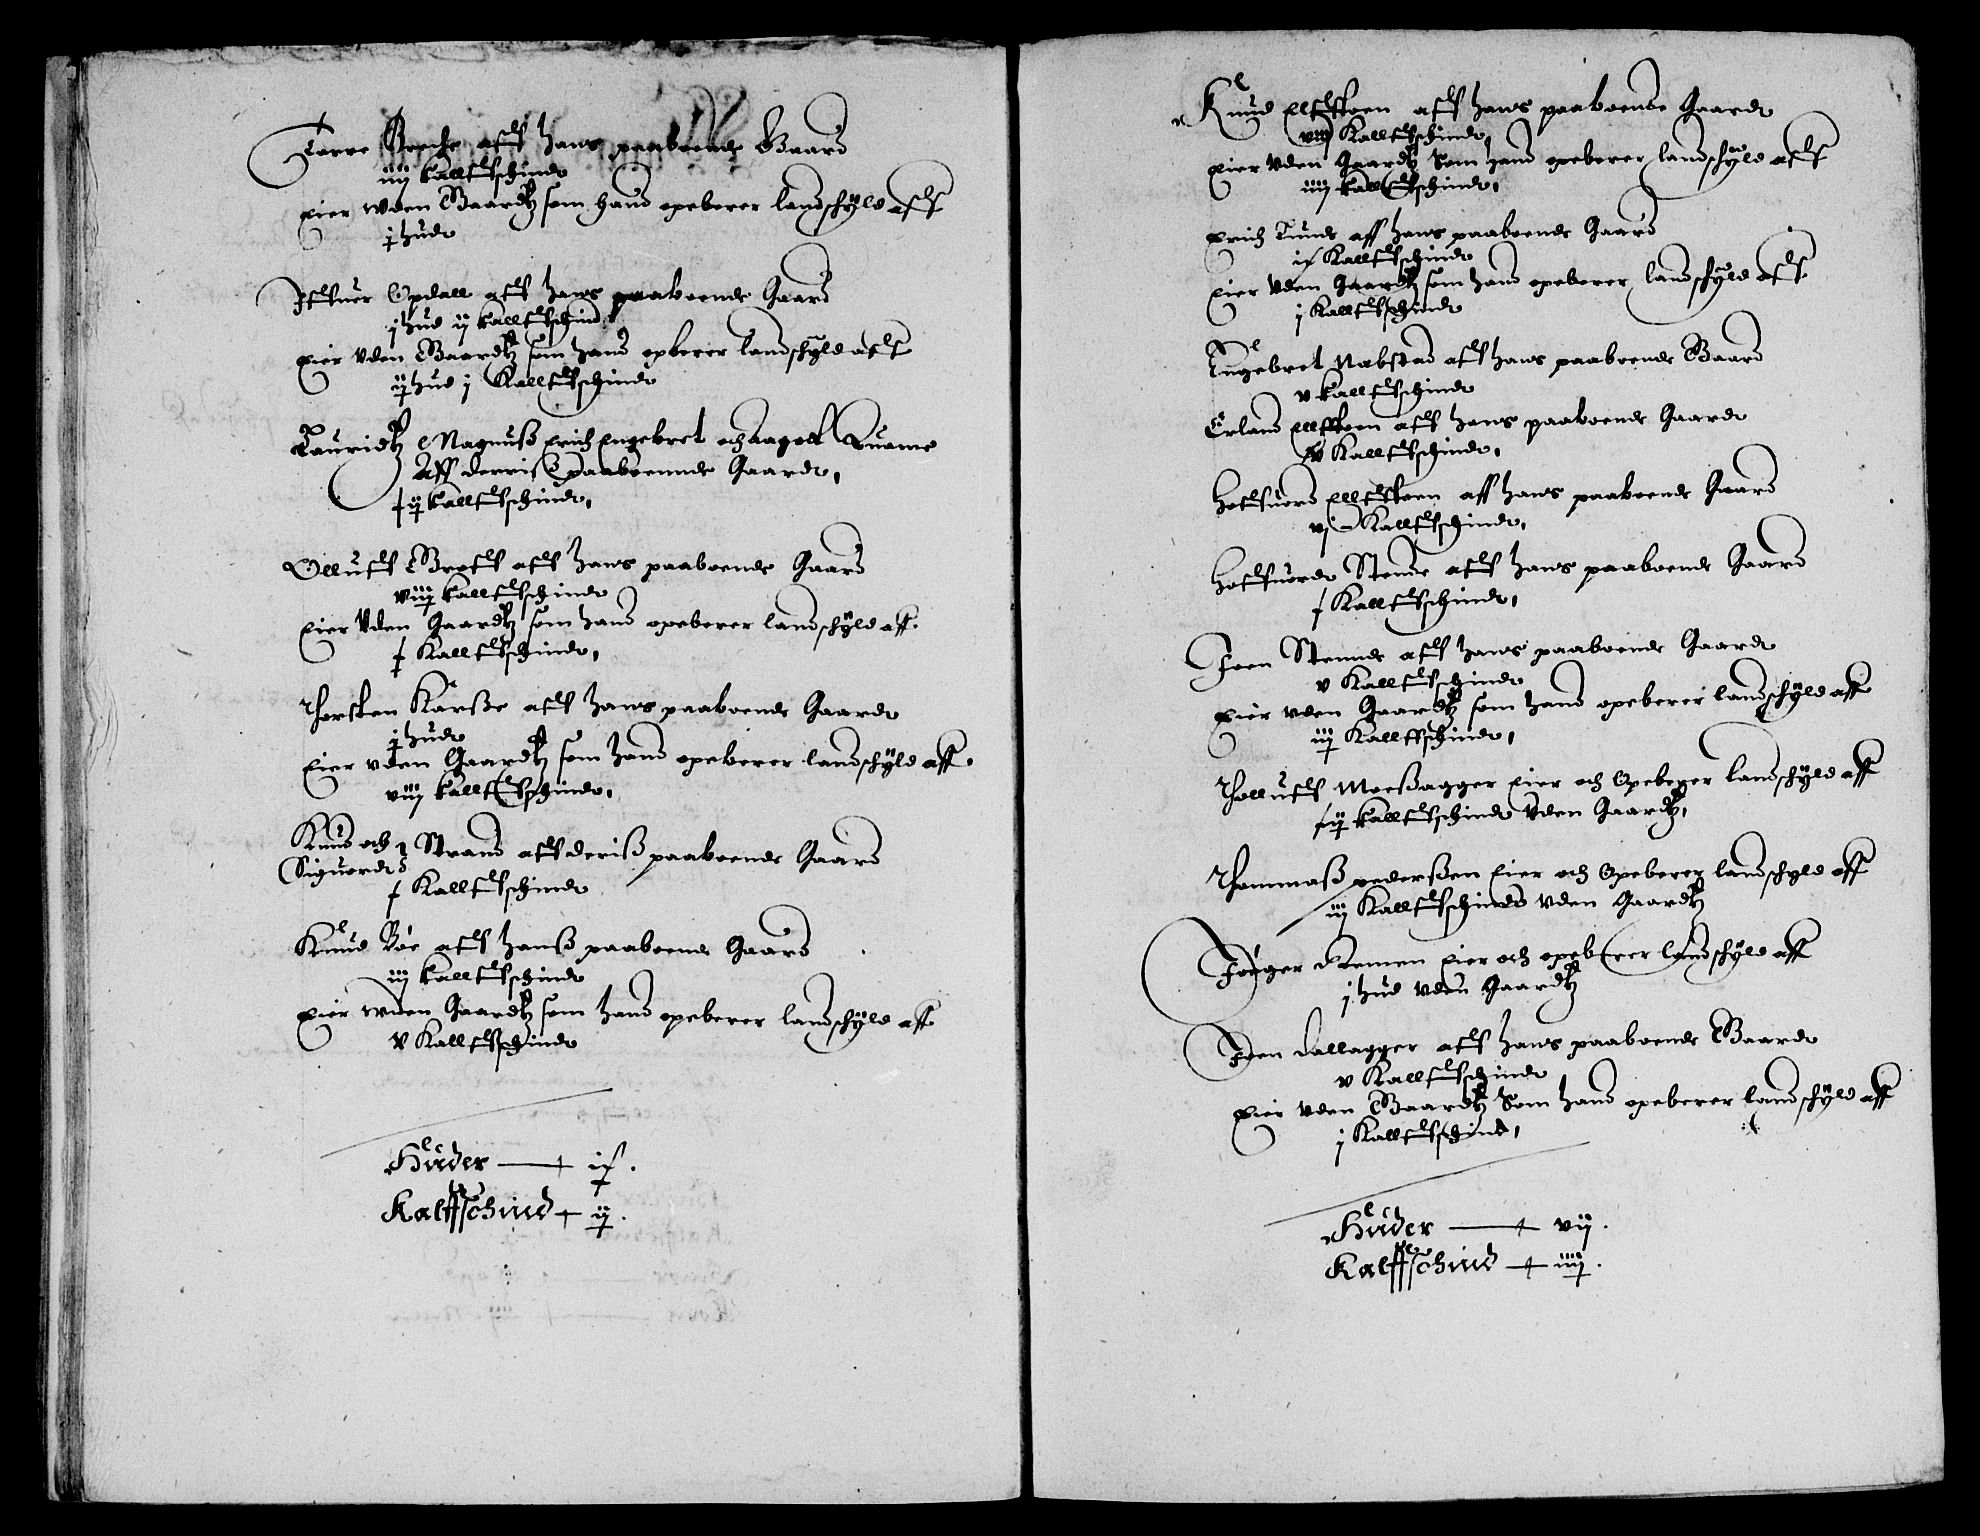 Torre Breche affs hans paaboende Gaard
iiij kallfschinde
Eier uden Gaardtz som hand opeberer landschyld affs
j hude
Iffuer Opdall affs hans paaboende Gaard
j hud ij kallffschind
Eier uden Gaardtz som hand opberer landschyld affs
ij hud j Kallffschinde
Lauridtz Magnuß Erich Engebret och Aagott Quame
Aff derris paaboennde Gaarde,
ij kallffschinde,
Olluffs Groffs affs hans paaboende Gaard
viij kallffschinde
Eier uden Gaardtz som hand opeberer landschyld aff.
Kallffschinde,
Thorsten Karße affs hans paaboende Gaarde
j hude
Eier uden Gaardtz som hand opeberer landschyld aff.
viij kallffschinde,
Knud och
Siguordt Strand affs deriß paaboende Gaard
Kallffschinde
Knud Røe affs hanß paaboende Gaard
iij kallffschinde
Eier uden Gaardtz som hand opeberer landschyld aff
v Kallffschinde
Hüder — ix.
Kalffschind ij.
Knud Elffstoen affs hans paaboende Gaarde
viij Kallffschinde,
Eier uden Gaardtz som hand opeberer landschyld affs
iiij kallffschinde,
Erich Tunde aff hans paaboende Gaard
ix Kallffschinde
Eier uden Gaardtz som hand opeberer landschyld affs
j Kallffschinde
Engebret Nabstad affs hans paaboende Gaard
v kallffschinde
Erland Ellffstoen affs hans paaboende Gaarde
Kallffschinde,
Hoffuord Ellffstoen aff hans paaboende Gaard
vj Kallffschinde,
Hoffuorde Stende affs hans paaboende Gaard
Kallffschinde,
Joen Stennde affs hans paaboende Gaarde
v Kallffschinde
Eier uden Gaardtz som hand opeberer landschyld aff
iij Kallffschinde,
Tholluffs Moeßagger Eier och Opeberer landschyld aff
ij kallffschinde uden Gaardtz,
Thommaß pederßen Eier och Opeberer landschyld aff
iij Kallffschinde uden Gaardtz
Jørger Eier och opeberer landschyld aff
j hud uden Gaardtz
Joen Dallagger affs hans paaboende Gaarde
v Kallffschinde
Eier uden Gaardtz som hand opeberer landschyld aff
j Kallffschind,
Hüder — vij.
Kalffschind iiij.